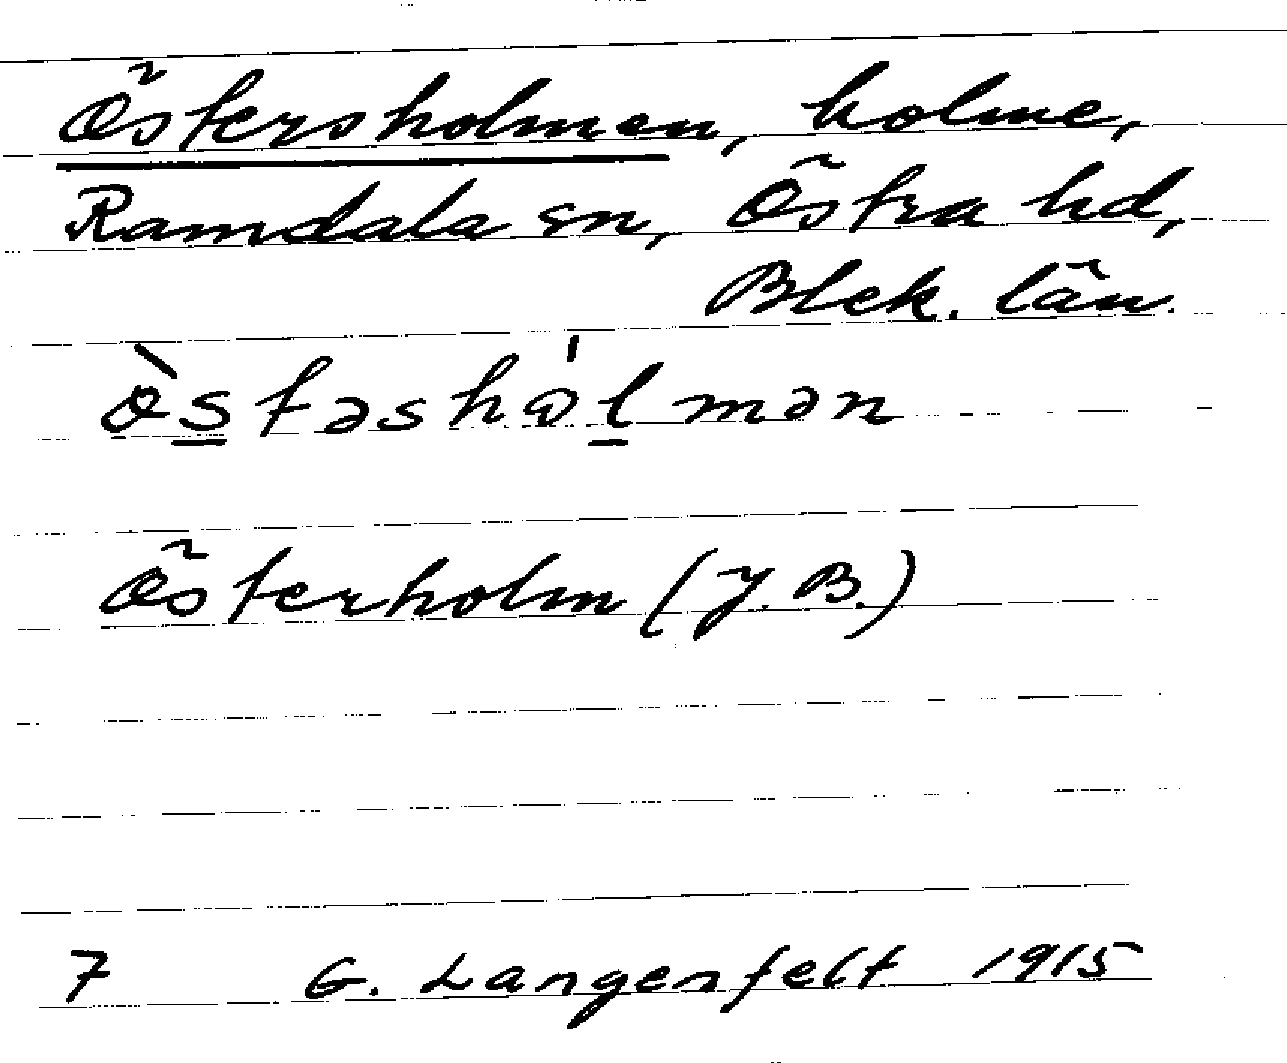 Östersholmen, holme,
Ramdala sn, Östra hd,
Blek. län.
ö̀stəshɷ́lmən
Österholm (J. B.)
7 G. Langenfelt 1915